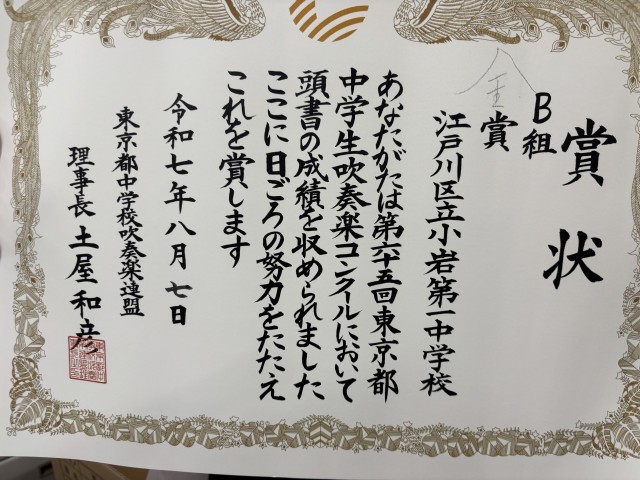 賞状
B組
金賞
江戸川区立小岩第一中学校
あなたがたは第六十五回東京都
中学生吹奏楽コンクールにおいて
頭書の成績を収められました
ここに日ごろの努力をたたえ
これを賞します
令和七年八月七日
東京都中学校吹奏楽連盟
理事長 土屋和彦